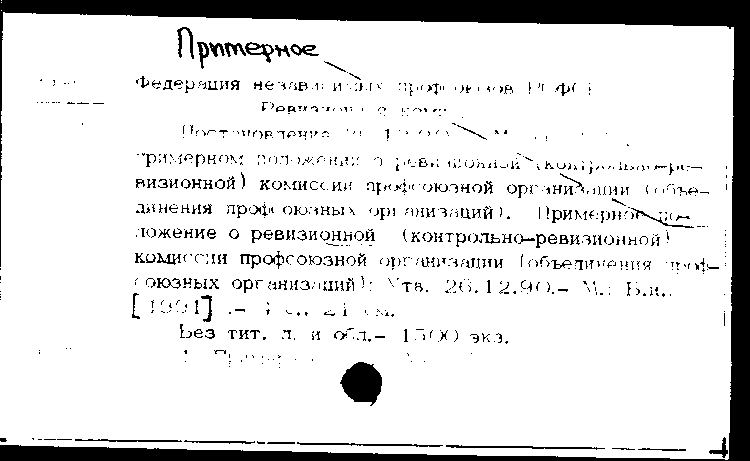 Примерное
Федерация независимых профсоюзов РСФСР
Ревизион
Постановление
примерном положении о ревизионной (контрольно-ре-
визионной) комиссии профсоюзной организации (объе-
динения профсоюзных организаций). Примерное по-
ложение о ревизионной (контрольно-ревизионной)
комиссии профсоюзной организации (объединения проф-
союзных организаций): Утв. 26.12.90.- М.: Б.и.,
[1991] .- 4 с., 21 см.
Без тит. л. и обл.- 1500 экз.
1.